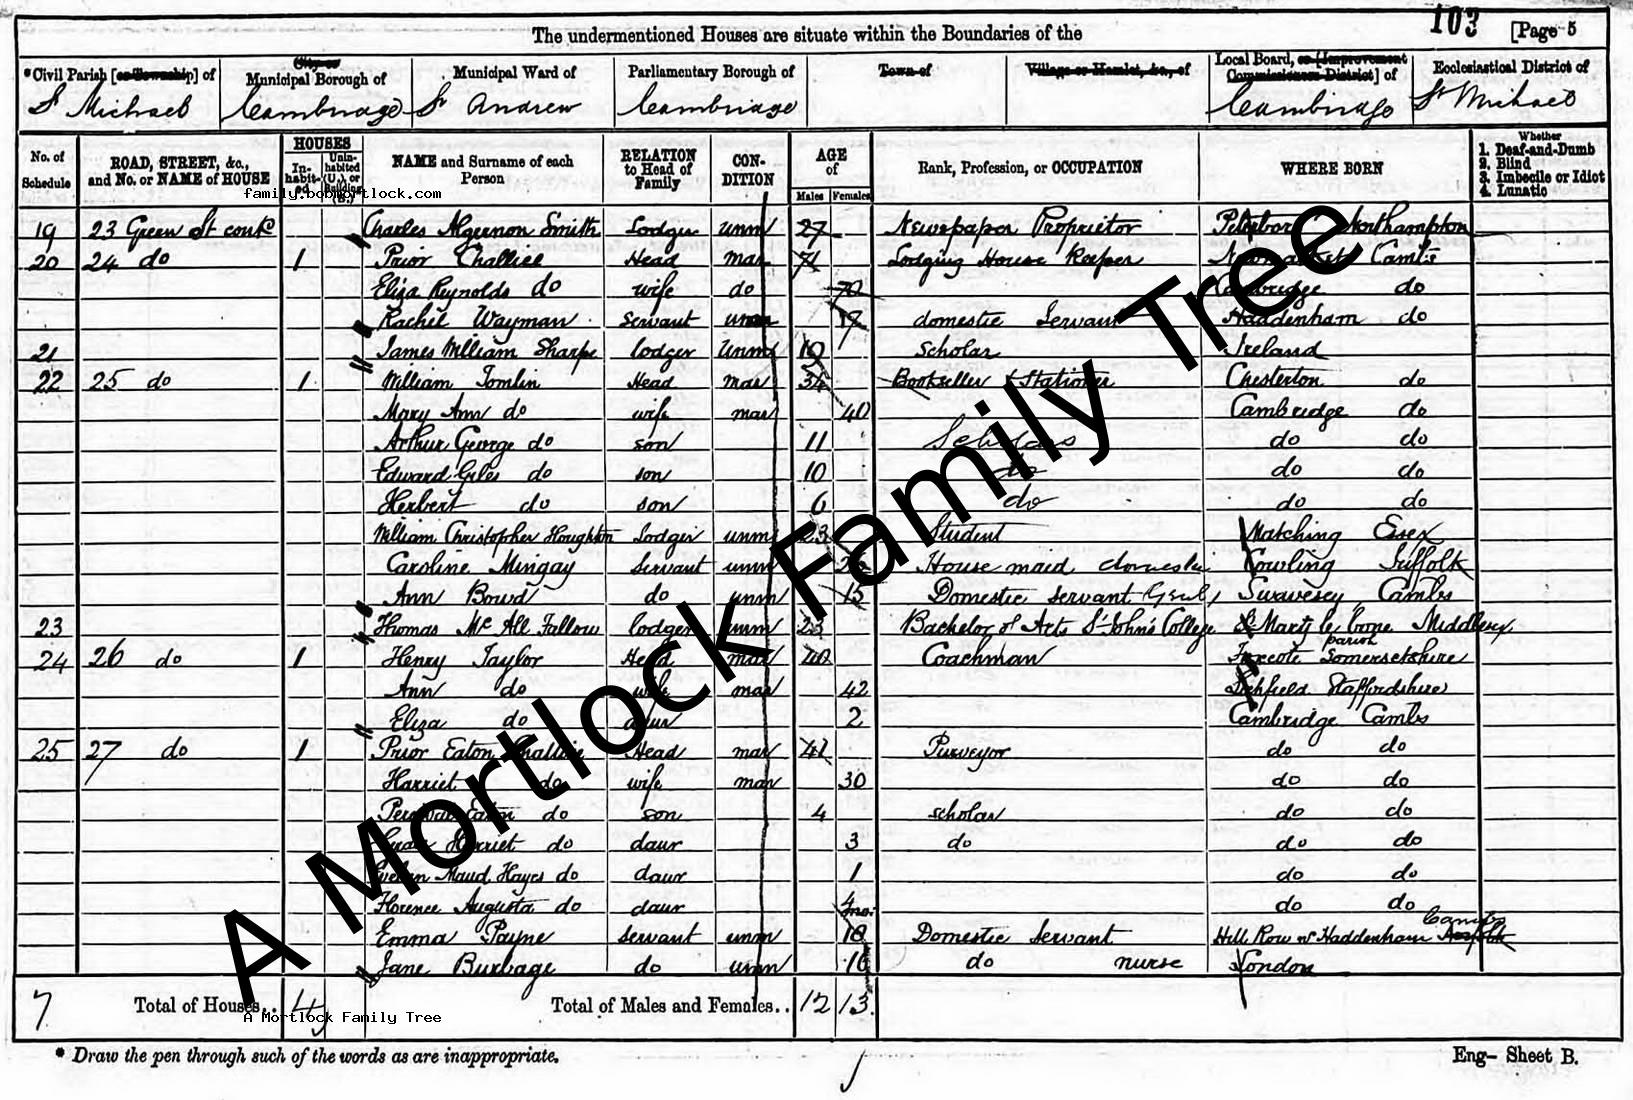 103 [Page 5
The undermentioned Houses are situate within the Boundaries of the
*Civil Parish [or Township] of
City or Municipal Borough of
Municipal Ward of
Parliamentary Borough of
Town of
Village or Hamlet, &c., of
Local Board, or [Improvement Commissioners District] of
Ecclesiastical District of
St Michael Cambridge St Andrew Cambridge Cambridge St Michael
No. of Schedule
ROAD, STREET, &c., and No. or NAME of HOUSE
HOUSES
In-habit-ed
Unin-habited (U.), or Building (B.)
NAME and Surname of each Person
RELATION to Head of Family
CON-DITION
AGE of
Males Females
Rank, Profession, or OCCUPATION
WHERE BORN
Whether
1. Deaf-and-Dumb
2. Blind
3. Imbecile or Idiot
4. Lunatic
family.bobmortlock.com
19 23 Green St cont Charles Algernon Smith Lodger unm 27 Newspaper Proprietor Peterboro Northampton
20 24 do 1 Prior Challice Head mar 71 Lodging House Keeper Newmarket Cambs
Eliza Reynolds do wife do 70 Cambridge do
Rachel Wayman servant unm 17 domestic Servant Haddenham do
21 James William Sharpe lodger Unm 19 Scholar Ireland
22 25 do 1 William Tomlin Head mar 34 Bookseller & Stationer Chesterton do
Mary Ann do wife mar 40 Cambridge do
Arthur George do son 11 Scholars do do
Edward Giles do son 10 do do do
Herbert do son 6 do do do
William Christopher Houghton Lodger unm 23 Student Matching Essex
Caroline Mingay servant unm House maid domestic Cowling Suffolk
Ann Bowd do unm 15 Domestic servant Genl Swavesey Cambs
23 Thomas Mc All Fallow lodger unm 23 Bachelor of Arts St John's College St Mary le bone Middlesex
24 26 do 1 Henry Taylor Head mar 40 Coachman parish Somersetshire
Ann do wife mar 42 Lichfield Staffordshire
Eliza do daur 2 Cambridge Cambs
25 27 do 1 Prior Eaton Challice Head mar 41 Purveyor do do
Harriet do wife mar 30 do do
Percival Eaton do son 4 scholar do do
Harriet do daur 3 do do do
Evelyn Maud Hayes do daur 1 do do
Florence Augusta do daur 4 mo. do do
Emma Payne servant unm 18 Domestic servant Hill Row nr Haddenham Cambs
Jane Burbage do unm 16 do nurse London
7 Total of Houses.. 4 Total of Males and Females.. 12 13
A Mortlock Family Tree
* Draw the pen through such of the words as are inappropriate.
Eng— Sheet B.
A Mortlock Family Tree